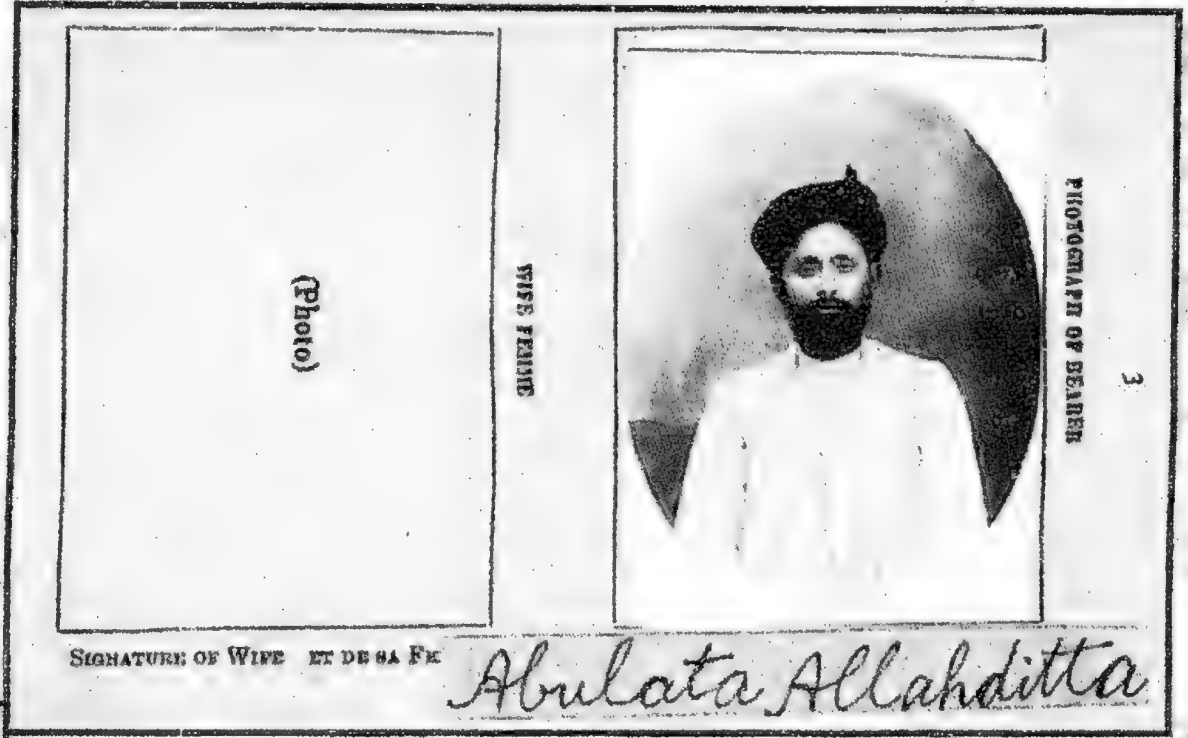 3
PHOTOGRAPH OF BEARER
WIFE FEMME
(Photo)
SIGNATURE OF WIFE ET DE SA FE
Abulata Allahditta